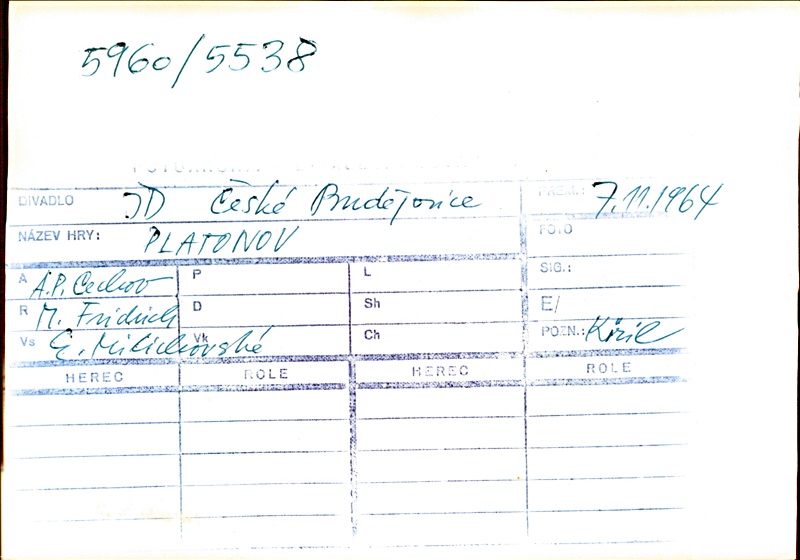 5960/5538
DIVADLO JD České Budějovice PREM.: 7.11.1964
NÁZEV HRY: PLATONOV FOTO
A A.P. Čechov P L SIG.:
R M. Fridrich D Sh E/
Vs E. Milichovská Vk Ch POZN.: Křič
HEREC ROLE HEREC ROLE